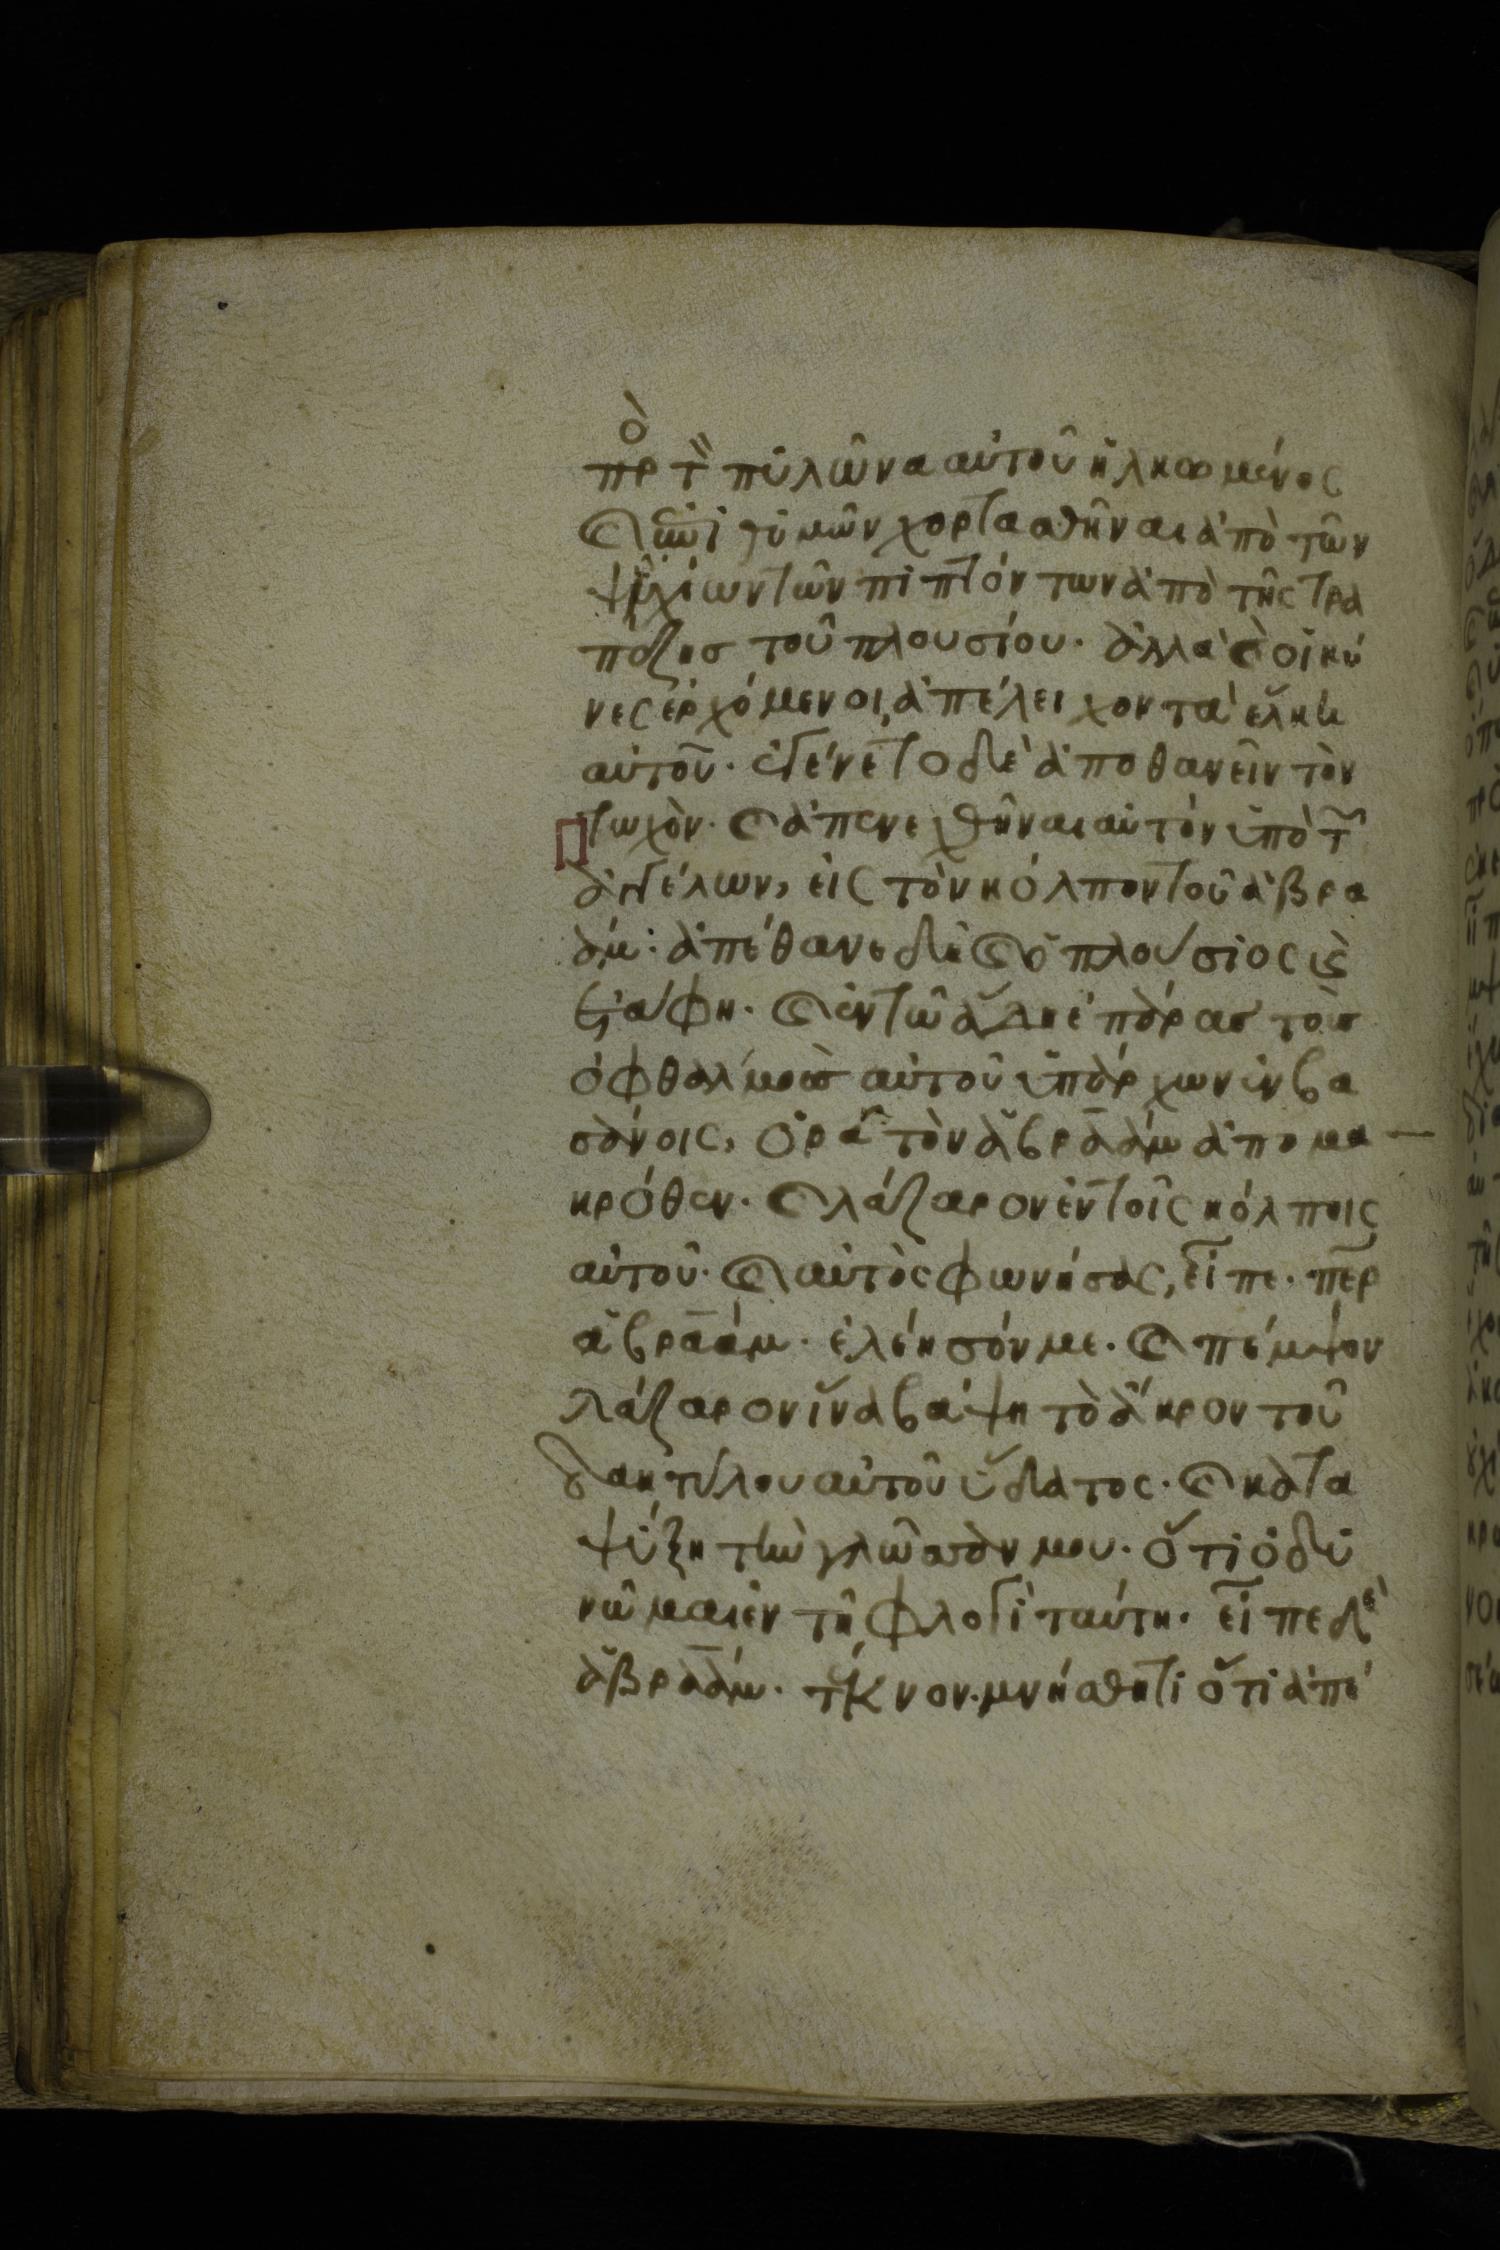 πρὸ τ πυλῶνα αὐτοῦ ἡλκωμένος
καὶ ἐπιθυμῶν χορτασθῆναι ἀπὸ τῶν
ψιχίων τῶν πιπτόντων ἀπὸ τῆς τρα
πέζης τοῦ πλουσίου· ἀλλὰ καὶ οἱ κύ
νες ἐρχόμενοι, ἀπέλειχον τὰ ἕλκη
αὐτοῦ· ἐγένετο δὲ ἀποθανεῖν τὸν
Πτωχὸν· καὶ ἀπενεχθῆναι αὐτὸν ὑπὸ τ
ἀγγέλων, εἰς τὸν κόλπον τοῦ ἀβρα
άμ· ἀπέθανε δὲ καὶ ὁ πλούσιος καὶ
ἐτάφη· καὶ ἐν τῶ ἅδη ἐπάρας τοὺς
ὀφθαλμοὺς αὐτοῦ ὑπάρχων ἐν βα
σάνοις, ὁρᾶ τὸν ἀβραὰμ ἀπο μα
κρόθεν· καὶ λάζαρον ἐν τοῖς κόλποις
αὐτοῦ· καὶ αὐτὸς φωνήσας, εἶπε· περ
ἀβραάμ· ἐλέησόν με· καὶ πέμψον
λάζαρον ἵνα βάψη τὸ ἄκρον τοῦ
δακτύλου αὐτοῦ ὕδατος· καὶ κατα
ψύξη τὴν γλῶσσάν μου· ὅτι ὀδυ
νῶμαι ἐν τῆ φλογὶ ταύτη· εἶπε δὲ
ἀβραάμ· τέκνον· μνήσθητι ὅτι ἀπέ